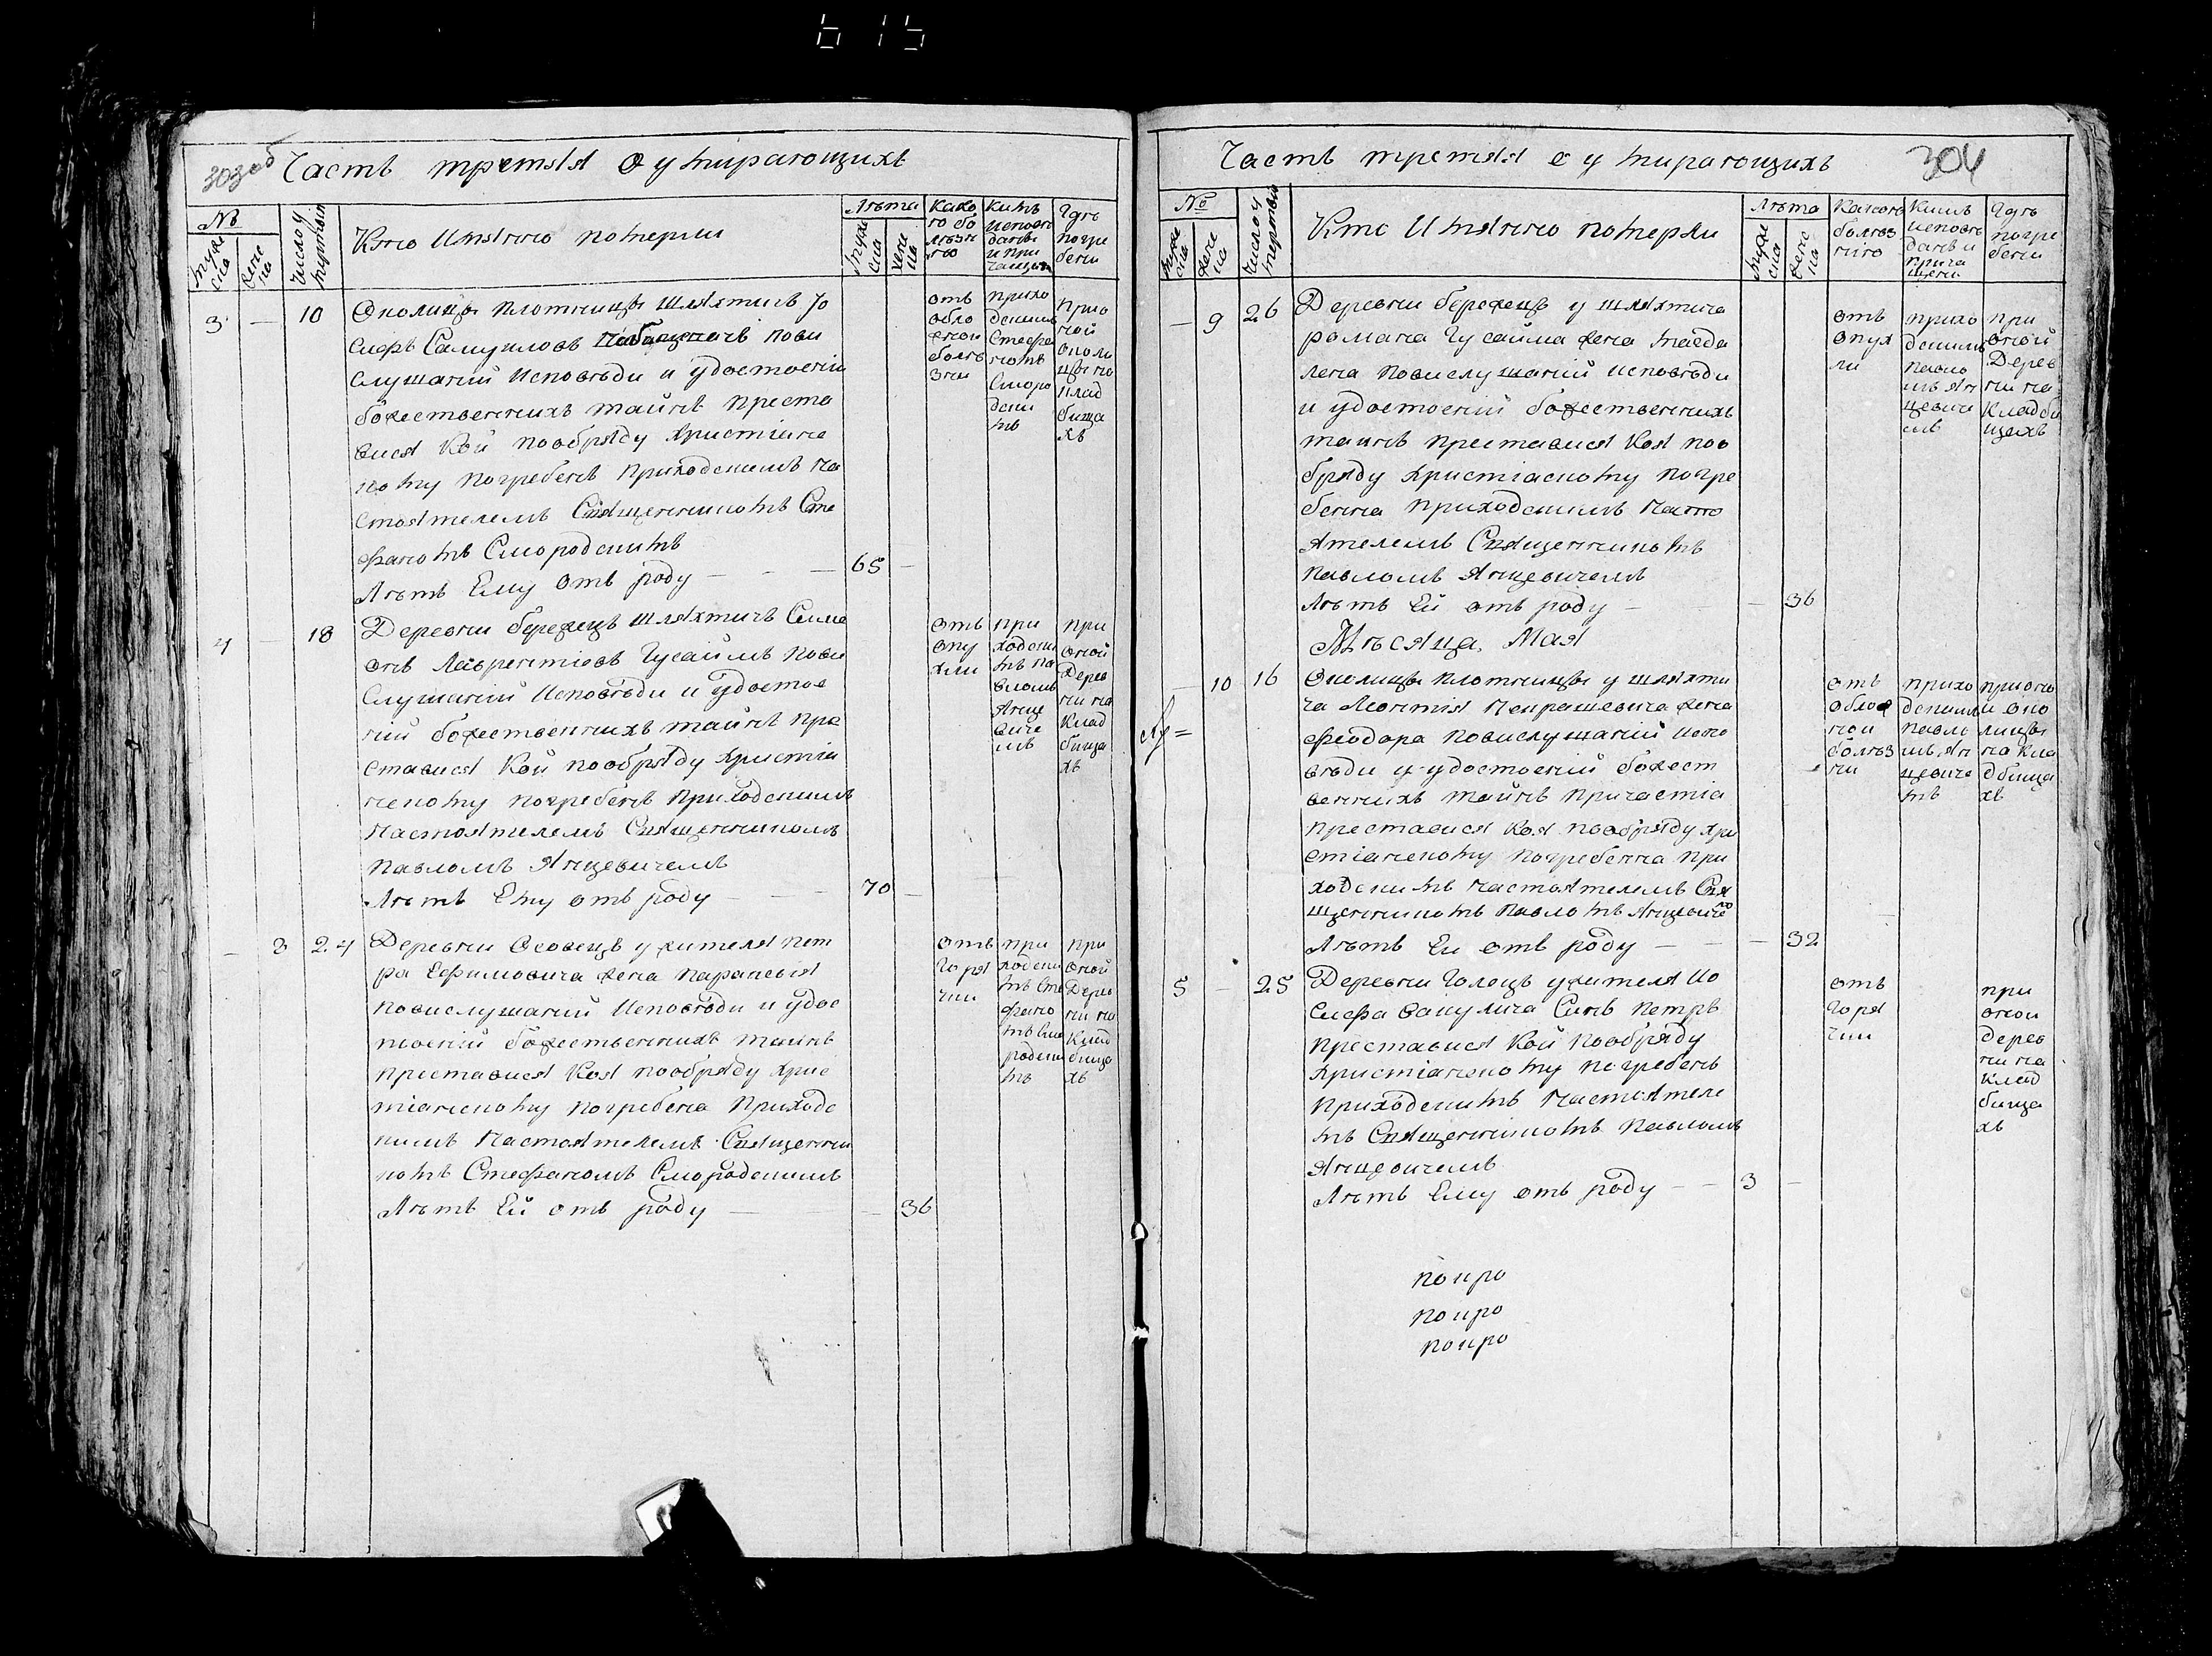 615
303об
Часть третяя о умирающихъ
№
мужеска
женска
Число умертвія
Кто имянно померли
Лѣта
мужеска
женска
Какою болѣзнію
Кимъ исповѣданы и прича
Гдѣ погребени
3 — 10 Околицы Плотницы шляхтичъ Іо
сифъ Самуиловъ по вы
слушаніи исповѣди и удостоеніи
божественныхъ тайнъ преста
вися кой по обряду христіанс
кому погребенъ приходскимъ на
стоятелемъ Священникомъ Сте
фаномъ Смородскимъ
Лѣтъ Ему отъ роду — — — 65 —
отъ
обло
жной
болѣ
зни
прихо
дскимъ
Стефа
номъ
Сморо
дски
мъ
при о
ной
околи
цы на
клад
бища
хъ
4 18 Деревни Бережецъ шляхтичъ Симе
онъ Лаврентіовъ Гусаимъ по вы
слушаніи исповѣди и удостое
ніи божественныхъ тайнъ пре
ставися кой по обряду христіа
нскому погребенъ приходскимъ
настоятелемъ Священникомъ
Павломъ Янцевичемъ
Лѣтъ Ему отъ роду — — 70 —
отъ
опу
хли
при
ходски
мъ Па
вломъ
Янце
виче
мъ
при
оной
Дерев
ни на
клад
бища
хъ
— 8 24 Деревни Осовецъ у жителя Пет
ра Ефимовича жена Параскевія
по выслушаніи исповѣди и удос
тоеніи божественныхъ таинъ
преставися коя по обряду хрис
тіанскому погребена приходс
кимъ настоятелемъ Священни
комъ Стефаномъ Смородскимъ
Лѣтъ Ей отъ роду — — 36
отъ
горя
чки
при
ходски
мъ Сте
фано
мъ Смо
родски
мъ
при
оной
Дерев
ни на
клад
бища
хъ
Часть третяя о умирающихъ
304
№
мужеска
женска
Число умертвія
Кто имянно померли
Лѣта
мужеска
женска
Какою
болѣз
нію
Кимъ
исповѣ
даны и
прича
щени
Гдѣ
погре
бени
— 9 26 Деревни Бережецъ у шляхтича
Романа Гусаима жена Магда
лена по выслушаніи исповѣди
и удостоеніи божественныхъ
таинъ преставися коя по о
бряду христіаскому погре
бенна приходскимъ насто
ятелемъ Священникомъ
Павломъ Янцевичемъ
Лѣтъ Ей отъ роду — — 36
отъ
опух
ли
прихо
дскимъ
Павло
мъ Ян
цевиче
мъ
при
оной
Дерев
ни на
кладби
щахъ
Мѣсяца Мая
— 10 16 Околицы Плотницы у шляхти
ча Леонтія жена
Феодора по выслушаніи испо
вѣди и удостоеніи божест
венныхъ тайнъ причастіа
преставися коя по обряду хри
стіанскому погребенна при
ходскимъ настоятелемъ Свя
щенникомъ Павломъ Янцевиче
Лѣтъ Еи отъ роду — — — 32
отъ
облож
нои
болѣз
ни
прихо
дскимъ
Павло
мъ Ян
цевиче
мъ
при оно
и око
лицы
на кла
дбища
хъ
5 — 25 Деревни Голецъ у жителя Ио
сифа Вакулича Синъ Петръ
преставися кой по обряду
христіанскому погребенъ
приходскимъ настоятеле
мъ Священникомъ Павломъ
Янцевичемъ
Лѣтъ Ему отъ роду — — 3 —
отъ
горя
чки
при
оной
дерев
ни на
клад
бища
хъ